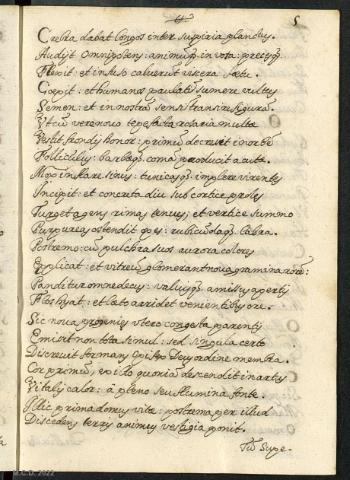 5
Crebra dabat longos inter suspiria planctus.
Audijt Omnipotens: animumq; in vota: precesq;
Flexit: et infuso caluerunt viscera foetu.
Coepit: et humanos paulatim sumere vultus
Semen: et in nostram sensim transire figuram.
Ut cum vere novo tepefacta rosaria multo
Vestit frondis honor: primum decrevit in orbem
Folliculus: barbasq; comam producit acutas.
Mox instare sinus: tunicasq; implere virentes
Incipit: et concreta diu sub cortice proles
Turget agens rimas tenues; et vertice summo
Purpureas ostendit opes: rubicundaq; labra.
Postremo cum pulchra suos aurora colores
Explicat: et vitreum glomerant nova gramina rorem:
Panditur omne decus: valvisq; amissus apertis
Flos hyat: et lato arridet venientibus ore.
Sic nova progenies utero congesta parentis
Emisit non tota simul: sed singula certo
Discrevit formam spatio Deus ordine membra.
Cor primum, ex illo quoniam descendit in artus
Vitalis calor: a pleno ceu flumina fonte.
Illic prima domus vitae: postrema per illud
Discedens terris animus vestigia ponit.
Tum Supe-
M.C.D. 2022